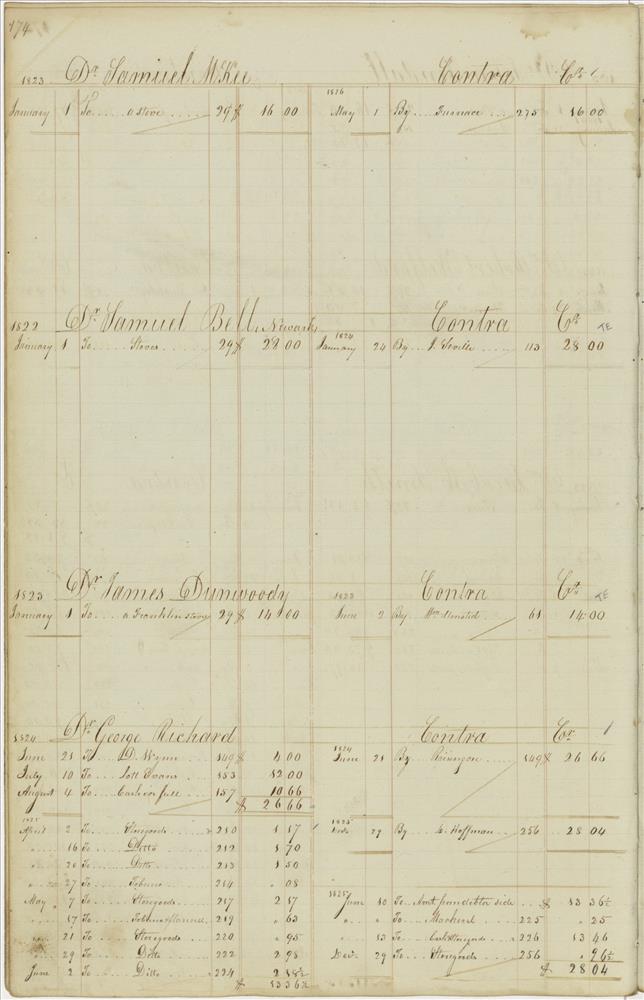 174
1823 Dr. Samuel McKee Contra Cr. 1
January 1 To a stove 29 $ 16 00
1826 May 1 By Furnace 275 16 00
1822 Dr. Samuel Bell, Newark Contra Cr. TE
January 1 To Stoves 29 $ 28 00
1824 January 24 By J. Seville 113 28 00
1823 Dr. James Dunwoody Contra Cr. TE
January 1 To a Franklin stove 29 $ 14 00
1823 June 2 By Wm. Olmsted 61 14 00
1824 Dr. George Richard Contra Cr. 1
June 21 To D. Wynn 149 $ 4 00
1824 June 21 By 149 $ 26 66
July 10 To Lott Evans 153 12 00
August 4 To Cash in full 157 10 66
$ 26 66
1825
April 2 To Storegoods 210 1 17
1825 29 By Hoffman 256 28 04
" 16 To Ditto 212 1 70
" 20 To Ditto 213 1 50
" 27 To Tobacco 214 " 08
May 7 To Storegoods 217 2 17
1825 June 10 To Amt from debtor side $ 13 36½
" 17 To Tobacco & 219 " 63
" " To Mackerel 225 " 25
" 21 To Storegoods 220 " 95
" 13 To Cash & Storegoods 226 13 46
" 29 To Ditto 222 2 98
Dec. 29 To Storegoods 256 " 96½
June 2 To Ditto 224 2 18½
$ 28 04
$ 13 36½